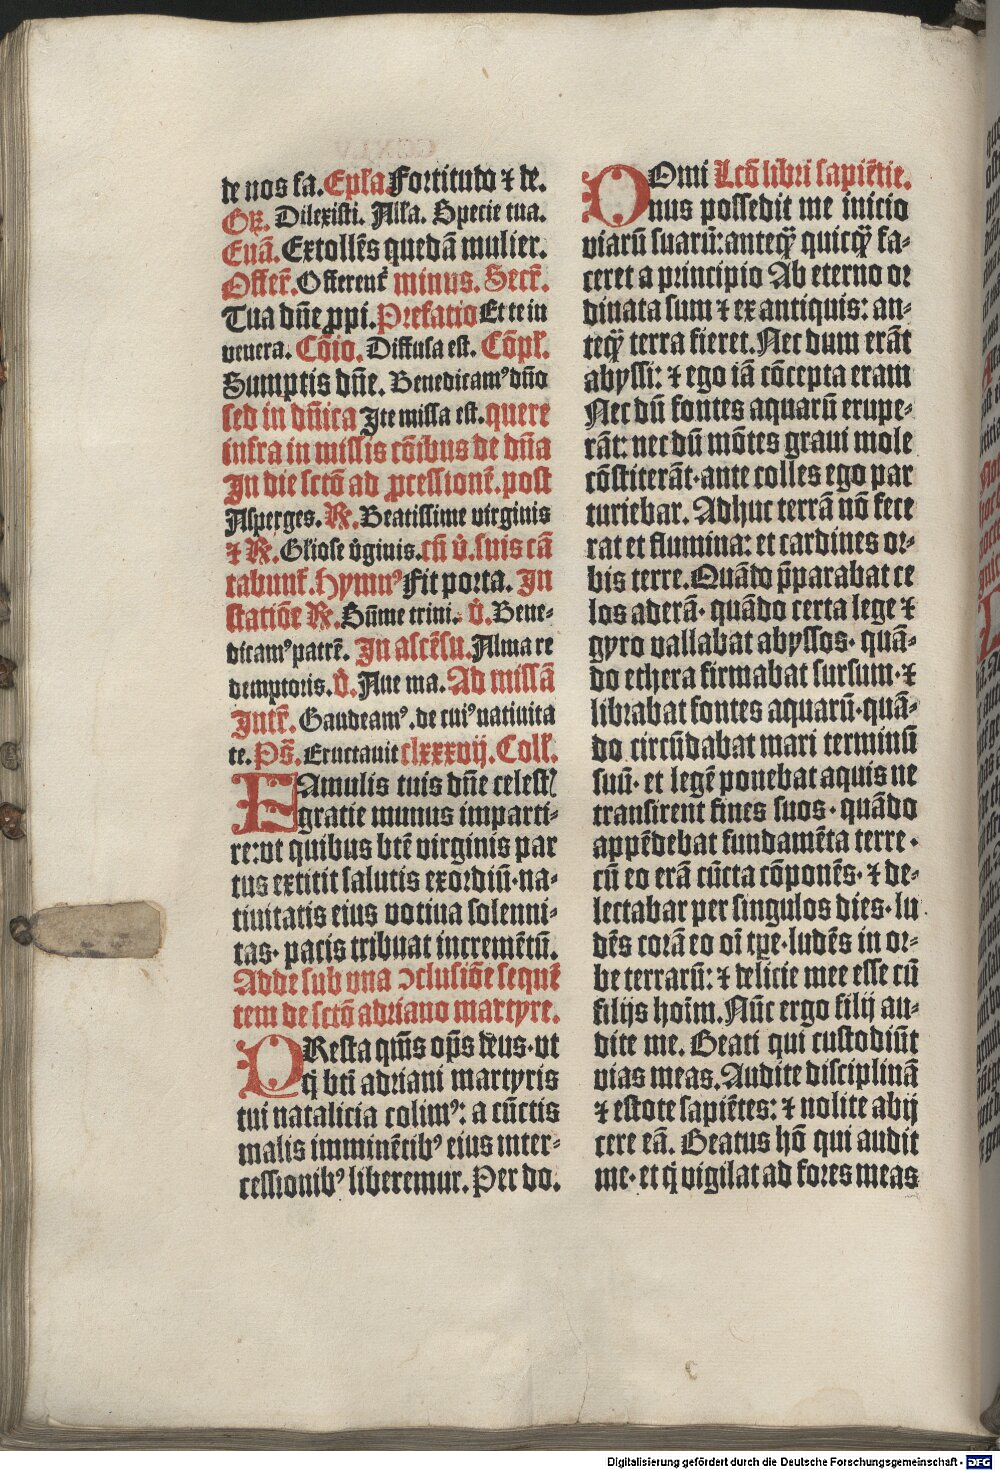 de nos fa. Epl̄a Fortitudo ⁊ de.
Gr̄. Dilexisti. All̄a. Specie tua.
Euā. Extollēs quedā mulier.
Offer̄. Offerent̄ minus. Secr̄.
Tua dn̄e ꝓpi. Prefatio Et te in
venera. Cōio. Diffusa est. Cōpl̄.
Sumptis dn̄e. Benedicamꝰ dn̄o
sed in dn̄ica Ite missa est. quere
infra in missis cōibus de dn̄a
In die sctō ad ꝓcessionē. post
Asperges. ℟. Beatissime virginis
⁊ ℟. Gl̄iose v̄ginis. cū v̄. suis cā
tabunt̄. Hymnꝰ Fit porta. In
statiōe ℟. Sūme trini. v̄. Bene-
dicamꝰ patrē. In ascēsu. Alma re
demptoris. v̄. Aue ma. Ad missā
Intr̄. Gaudeamꝰ. de cuiꝰ natiuita
te. Ps̄. Eructauit clxxxvij. Coll̄.
FAmulis tuis dn̄e celest̄
gratie munus imparti-
re: vt quibus btē virginis par
tus extitit salutis exordiū. na-
tiuitatis eius votiua solenni-
tas. pacis tribuat incremētū.
Adde sub vna ↄclusiōe sequē
tem de sctō adriano martyre.
PResta qm̄s op̄s deus. vt
q̄ bti adriani martyris
tui natalicia colimꝰ: a cūctis
malis imminētibꝰ eius inter-
cessionibꝰ liberemur. Per do.
DOmi Lcō libri sapiētie.
nus possedit me inicio
viarū suarū: anteqꝫ quicqꝫ fa-
ceret a principio Ab eterno or
dinata sum ⁊ ex antiquis: an-
teqꝫ terra fieret. Nec dum erāt
abyssi: ⁊ ego iā cōcepta eram
Nec dū fontes aquarū erupe-
rāt: nec dū mōtes graui mole
cōstiterāt. ante colles ego par
turiebar. Adhuc terrā nō fece
rat et flumina: et cardines or-
bis terre. Quādo p̄parabat ce
los aderā. quādo certa lege ⁊
gyro vallabat abyssos. quā-
do ethera firmabat sursum. ⁊
librabat fontes aquarū. quā-
do circūdabat mari terminū
suū. et legē ponebat aquis ne
transirent fines suos. quādo
appēdebat fundamēta terre.
cū eo erā cūcta cōponēs. ⁊ de-
lectabar per singulos dies. lu
dēs corā eo oī tꝑe. ludēs in or-
be terrarū: ⁊ delicie mee esse cū
filijs hoīm. Nūc ergo filij au-
dite me. Beati qui custodiūt
vias meas. Audite disciplinā
⁊ estote sapiētes: ⁊ nolite abij
cere eā. Beatus hō qui audit
me. et q̄ vigilat ad fores meas
Digitalisierung gefördert durch die Deutsche Forschungsgemeinschaft - DFG